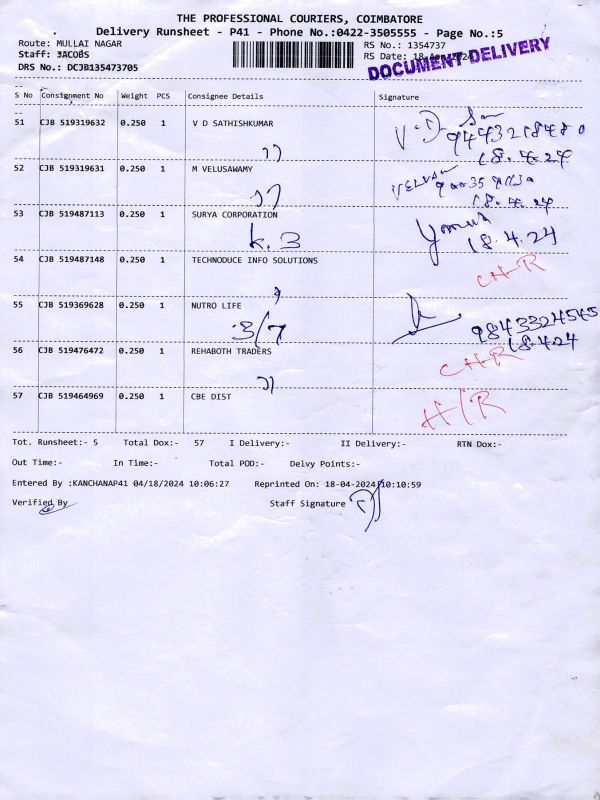 THE PROFESSIONAL COURIERS, COIMBATORE
Delivery Runsheet - P41 - Phone No.:0422-3505555 - Page No.:5
Route: MULLAI NAGAR
RS No.: 1354737
Staff: JACOBS
RS Date: 18-Apr-2024
DRS No.: DCJB135473705
DOCUMENT DELIVERY
S No Consignment No Weight PCS Consignee Details Signature
51 CJB 519319632 0.250 1 V D SATHISHKUMAR V.D.
18.4.24
52 CJB 519319631 0.250 1 M VELUSAWAMY
18.4.24
53 CJB 519487113 0.250 1 SURYA CORPORATION
K.3 18.4.24
54 CJB 519487148 0.250 1 TECHNODUCE INFO SOLUTIONS CH-R
55 CJB 519369628 0.250 1 NUTRO LIFE
3/7 9843324545
18.4.24
56 CJB 519476472 0.250 1 REHABOTH TRADERS CH-R
57 CJB 519464969 0.250 1 CBE DIST H/R
Tot. Runsheet:- 5 Total Dox:- 57 I Delivery:- II Delivery:- RTN Dox:-
Out Time:- In Time:- Total POD:- Delvy Points:-
Entered By :KANCHANAP41 04/18/2024 10:06:27 Reprinted On: 18-04-2024 10:10:59
Verified By Staff Signature